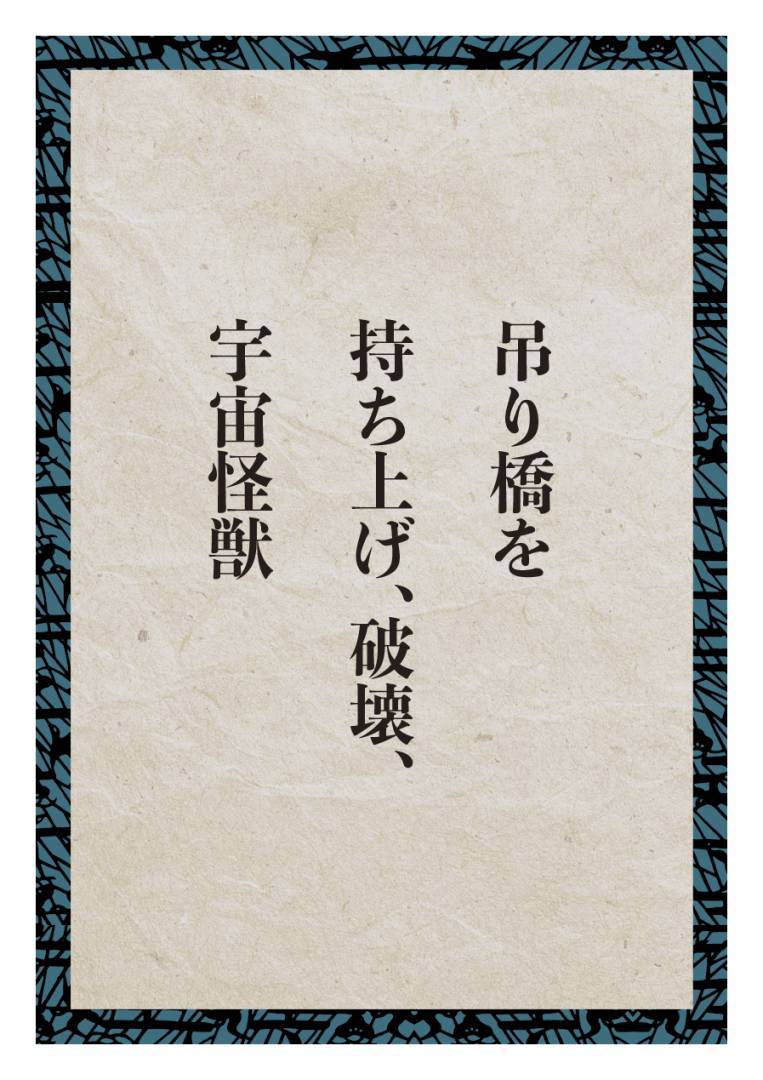 吊り橋を
持ち上げ、破壊、
宇宙怪獣